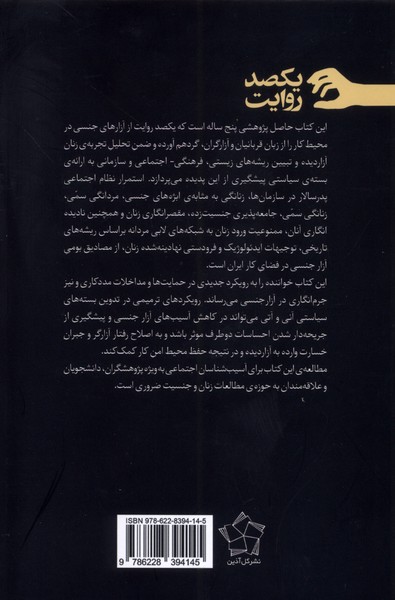 یکصد
روایت
این کتاب حاصل پژوهشی پنج ساله است که یکصد روایت از آزارهای جنسی در
محیط کار را از زبان قربانیان و آزارگران، گردهم آورده و ضمن تحلیل تجربه‌ی زنان
آزاردیده و تبیین ریشه‌های زیستی، فرهنگی- اجتماعی و سازمانی به ارائه‌ی
بسته‌ی سیاستی پیشگیری از این پدیده می‌پردازد. استمرار نظام اجتماعی
پدرسالار در سازمان‌ها، زنانگی به مثابه‌ی ابژه‌های جنسی، مردانگی سمّی،
زنانگی سمّی، جامعه‌پذیری جنسیت‌زده، مقصرانگاری زنان و همچنین نادیده
انگاری آنان، ممنوعیت ورود زنان به شبکه‌های لابی مردانه براساس ریشه‌های
تاریخی، توجیهات ایدئولوژیک و فرودستی نهادینه‌شده زنان، از مصادیق بومی
آزار جنسی در فضای کار ایران است.
این کتاب خواننده را به رویکرد جدیدی در حمایت‌ها و مداخلات مددکاری و نیز
جرم‌انگاری در آزار جنسی می‌رساند. رویکردهای ترمیمی در تدوین بسته‌های
سیاستی آنی و آتی می‌تواند در کاهش آسیب‌های آزار جنسی و پیشگیری از
جریحه‌دار شدن احساسات دوطرف موثر باشد و به اصلاح رفتار آزارگر و جبران
خسارت وارده به آزاردیده و در نتیجه حفظ محیط امن کار کمک کند.
مطالعه‌ی این کتاب برای آسیب‌شناسان اجتماعی به ویژه پژوهشگران، دانشجویان
و علاقه‌مندان به حوزه‌ی مطالعات زنان و جنسیت ضروری است.
ISBN 978-622-8394-14-5
9 786228 394145
نشر گل آذین